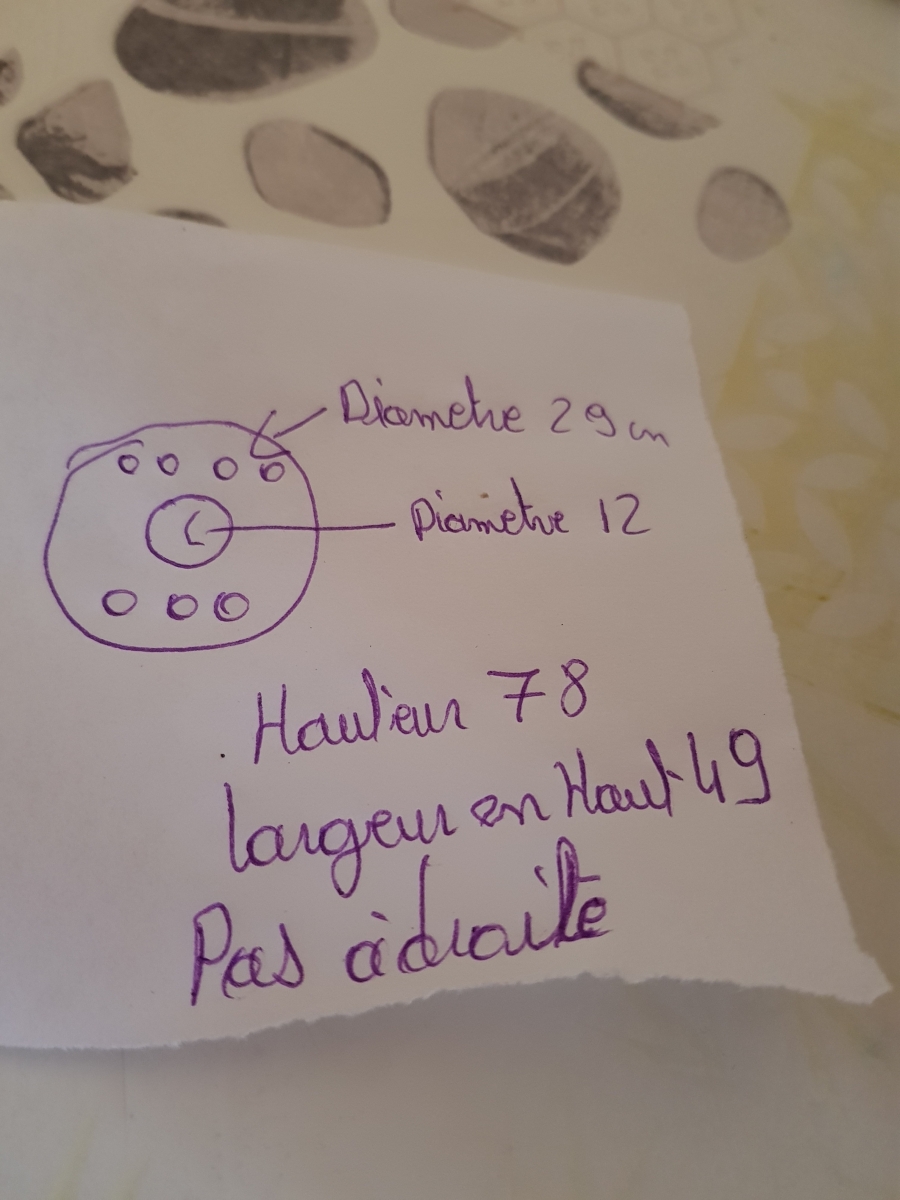 Diametre 29 cm
Diametre 12
Hauteur 78
largeur en Haut 49
Pas à droite